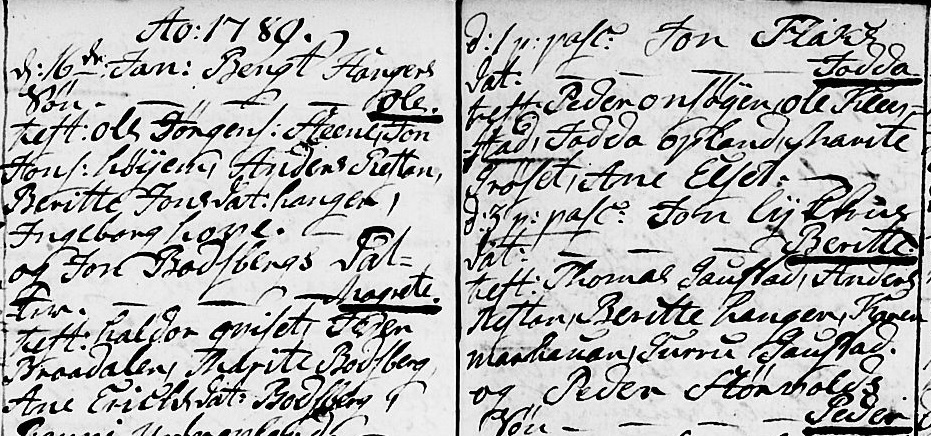 Ao: 1789.
d: 16de Jan: Bengt Hangers
Søn. — — — Ole.
test: ole Jørgens: Steene, Jon
Jons: Høÿem, Anders Restan,
Beritte Jons dat: hanger,
Ingeborg hove. —
og Jon Bodsbergs Dat-
ter. — — — Marete.
test: haldor qviset, Peder
Braadalen, Marite Bodsberg,
Ane Erichs dat: Bodsberg,
d: 1 p: pasc: Jon Flaks
Dat: — — — Todda
test: Peder onsøÿen, ole Kleer-
stad, Todda opland, Marite
Frøset, Ane Elset. —
d: 3 p: pasc: Jon Lÿkhus
Dat: — — — Beritte
test: Thomas Gaustad, Anders
Restan, Beritte hanger, Karen
Gurru Gaustad.
og Peder
Søn — — — Peder